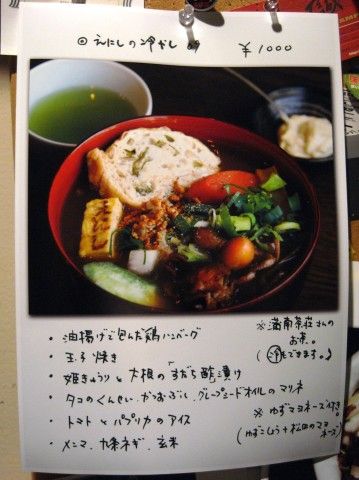 えにしの冷やし
¥1000
・油揚げで包んだ鶏ハンバーグ
・玉子焼き
・姫きゅうりと大根のすだち酢漬け
・タコのくんせい、かつおぶし、グレープシードオイルのマリネ
・トマトとパプリカのアイス
・メンマ、九条ネギ、玄米
※満南茶荘さんの
お茶。
(冷もできます。)
※ゆずマヨネーズ付き
(ゆずこしょう+松田のマヨ
ネーズ)